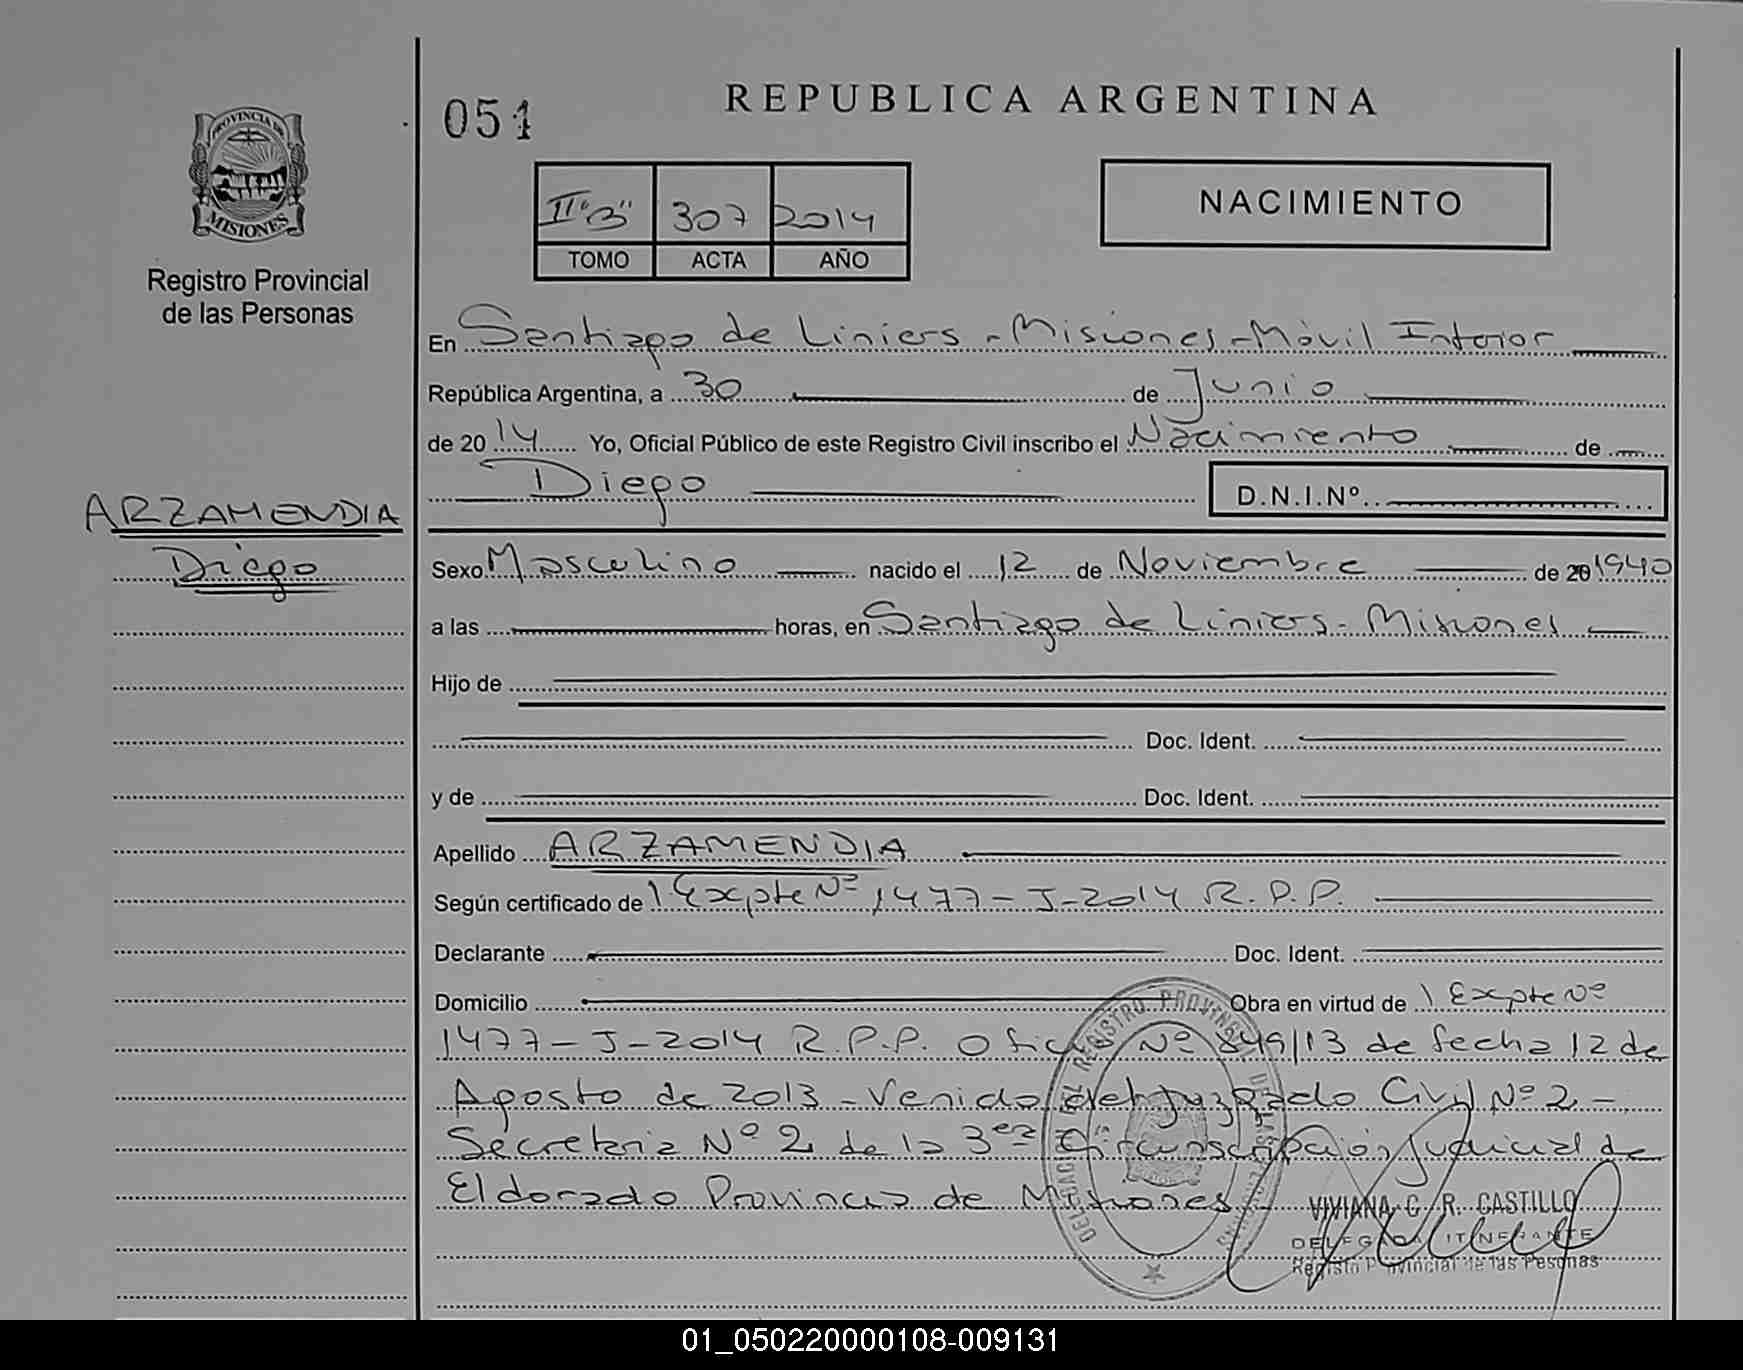 REPUBLICA ARGENTINA
051
PROVINCIA DE
MISIONES
Registro Provincial
de las Personas
II "B" 307 2014
TOMO ACTA AÑO
NACIMIENTO
En Santiago de Liniers - Misiones - Móvil Interior
República Argentina, a 30 de Junio
de 2014 Yo, Oficial Público de este Registro Civil inscribo el Nacimiento de
Diego D.N.I.Nº
ARZAMENDIA
Diego
Sexo Masculino nacido el 12 de Noviembre de 20 1940
a las horas, en Santiago de Liniers - Misiones
Hijo de
Doc. Ident.
y de Doc. Ident.
Apellido ARZAMENDIA
Según certificado de Expte Nº 1477-J-2014 R.P.P.
Declarante Doc. Ident.
Domicilio Obra en virtud de Expte Nº
1477-J-2014 R.P.P. Oficio Nº 849/13 de fecha 12 de
Agosto de 2013 - Venido del Juzgado Civil Nº 2 -
Secretaria Nº 2 de la 3era Circunscripción Judicial de
Eldorado Provincia de Misiones
VIVIANA C. R. CASTILLO
DELEGADA ITINERANTE
Registo Provincial de las Pesonas
01_050220000108-009131